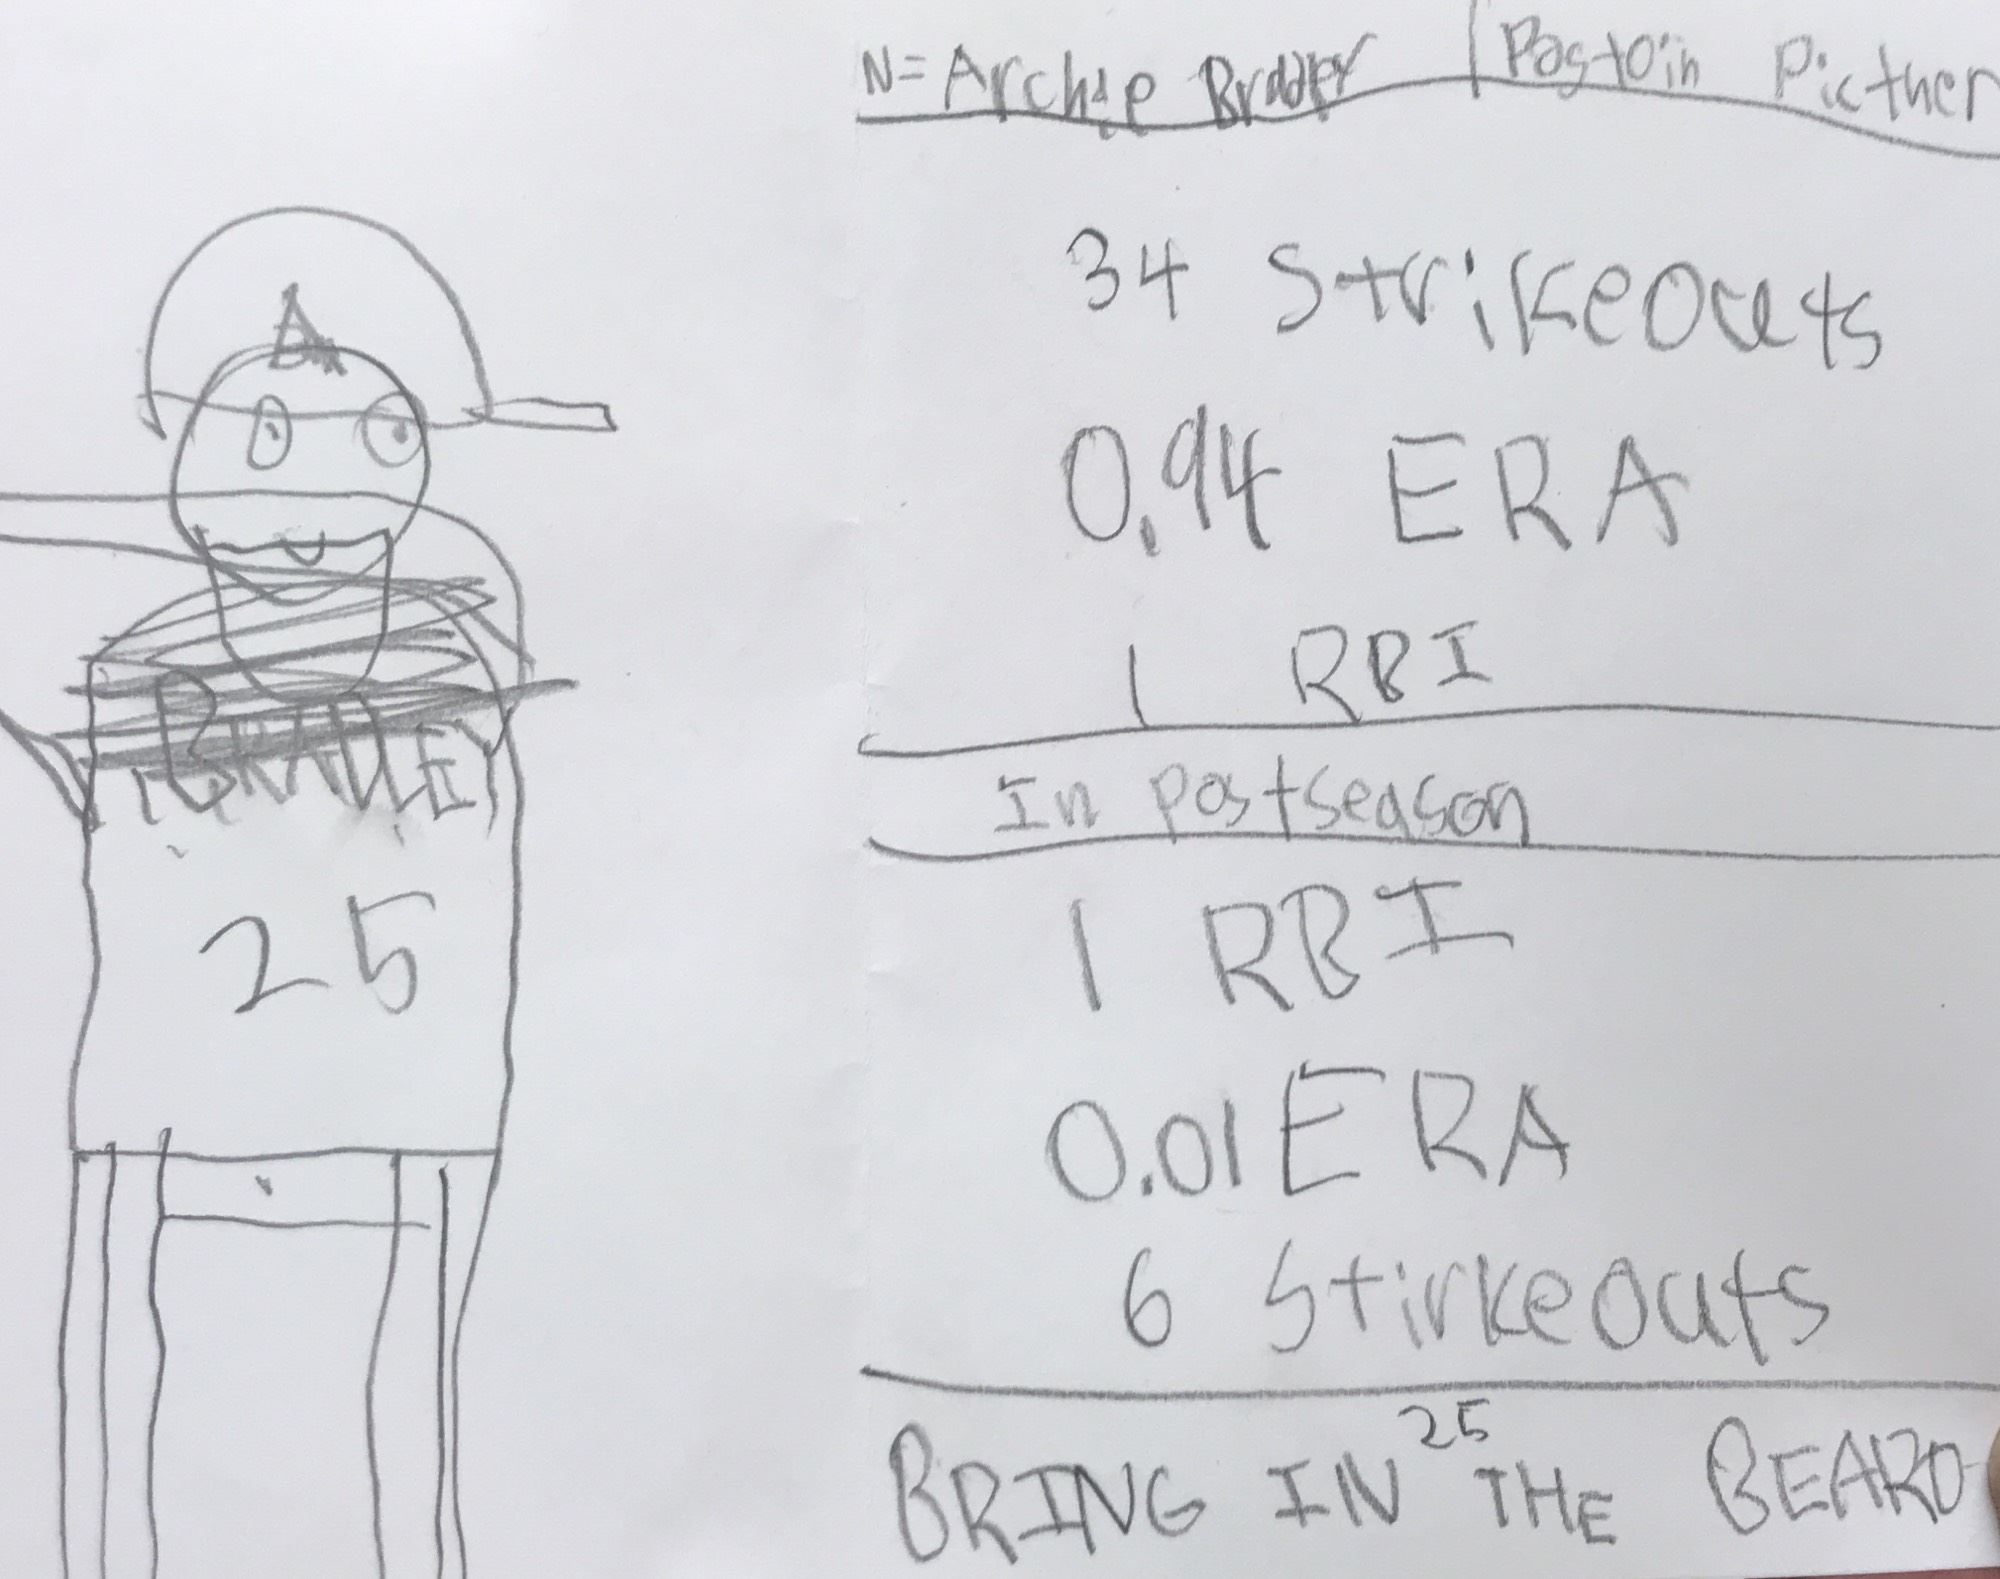 A
BRADLEY
25
N= Archie Bradley | Postoin Picther
34 Strikeouts
0.94 ERA
1 RBI
In postseason
1 RBI
0.01 ERA
6 Stirkeouts
25
BRING IN THE BEARD